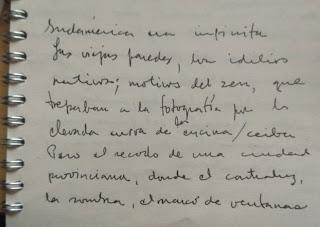 Sudamérica era infinita
Las viejas paredes, los idilios
nativos; motivos del zen, que
trepaban a la fotografía por la
elevada curva de la encina/ceiba
Pero el recodo de una ciudad
provinciana, donde el contraluz,
la sombra, el marco de ventanas